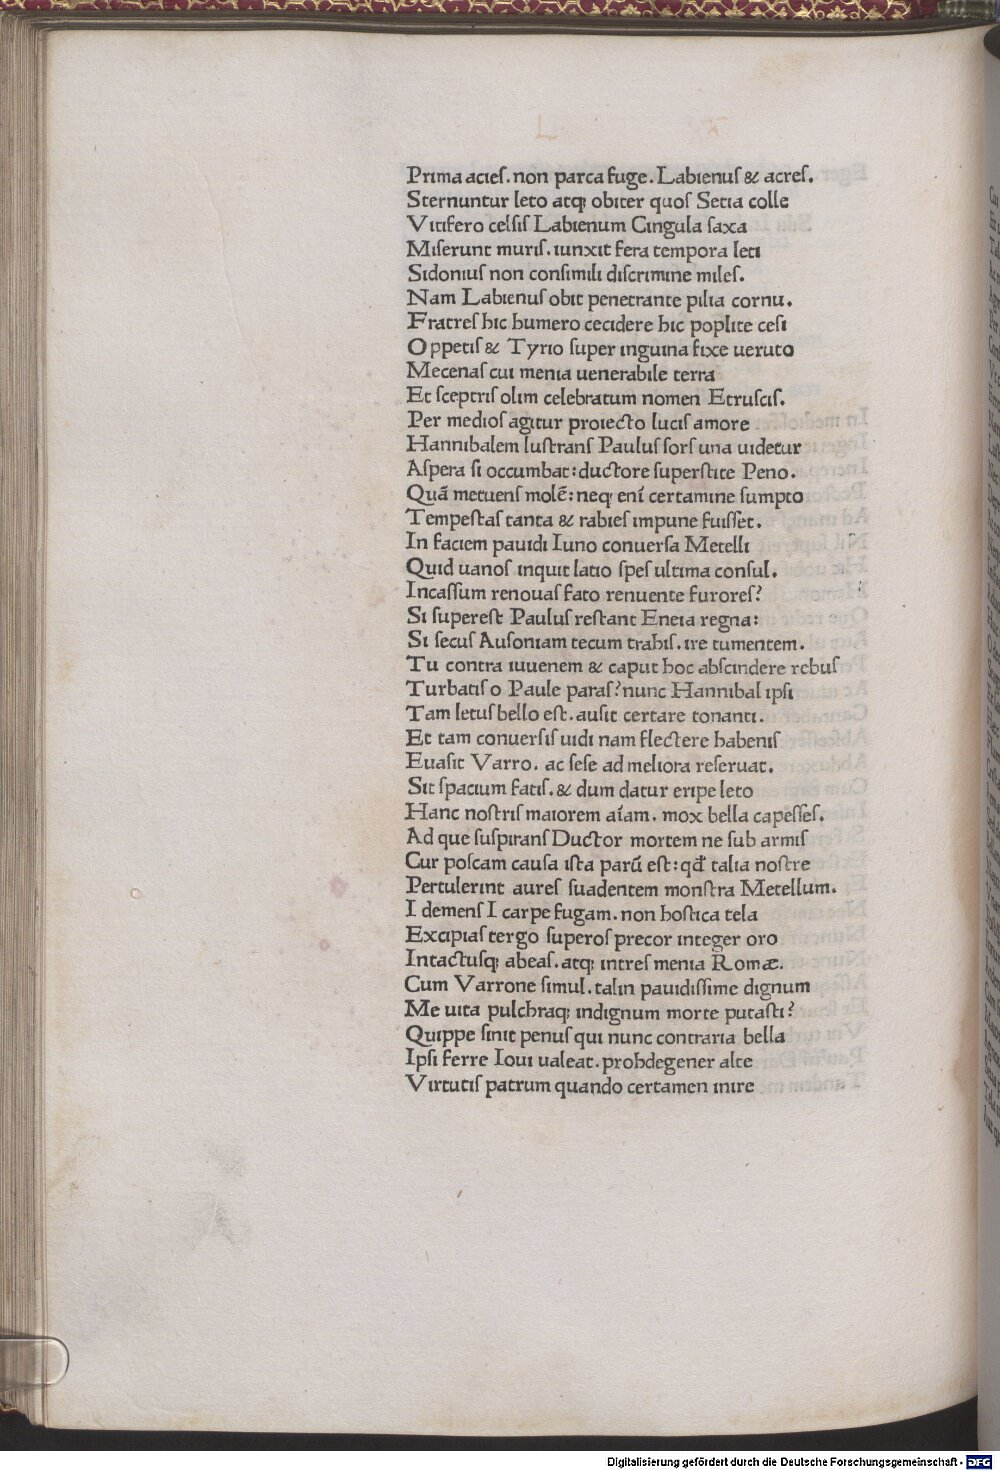 Prima acieſ. non parca fuge. Labienuſ & acreſ.
Sternuntur leto atq; obiter quoſ Setia colle
Vitifero celſiſ Labienum Cingula ſaxa
Miſerunt muriſ. iunxit fera tempora leti
Sidoniuſ non conſimili diſcrimine mileſ.
Nam Labienuſ obit penetrante pilia cornu.
Fratreſ hic humero cecidere hic poplite ceſi
Oppetiſ & Tyrio ſuper inguina fixe ueruto
Mecenaſ cui menia uenerabile terra
Et ſceptriſ olim celebratum nomen Etruſciſ.
Per medioſ agitur proiecto luciſ amore
Hannibalem luſtranſ Pauluſ ſorſ una uidetur
Aſpera ſi occumbat: ductore ſuperſtite Peno.
Quā metuenſ molē: neq; enī certamine ſumpto
Tempeſtaſ tanta & rabieſ impune fuiſſet.
In faciem pauidi Iuno conuerſa Metelli
Quid uanoſ inquit latio ſpeſ ultima conſul.
Incaſſum renouaſ fato renuente furoreſ?
Si ſupereſt Pauluſ reſtant Eneia regna:
Si ſecuſ Auſoniam tecum trahiſ. ire tumentem.
Tu contra iuuenem & caput hoc abſcindere rebuſ
Turbatiſ o Paule paraſ? nunc Hannibal ipſi
Tam letuſ bello eſt. auſit certare tonanti.
Et tam conuerſiſ uidi nam flectere habeniſ
Euaſit Varro. ac ſeſe ad meliora reſeruat.
Sit ſpacium fatiſ. & dum datur eripe leto
Hanc noſtriſ maiorem aīam. mox bella capeſſeſ.
Ad que ſuſpiranſ Ductor mortem ne ſub armiſ
Cur poſcam cauſa iſta parū eſt: qđ talia noſtre
Pertulerint aureſ ſuadentem monſtra Metellum.
I demenſ I carpe fugam. non hoſtica tela
Excipiaſ tergo ſuperoſ precor integer oro
Intactuſq; abeaſ. atq; intreſ menia Romæ.
Cum Varrone ſimul. talin pauidiſſime dignum
Me uita pulchraq; indignum morte putaſti?
Quippe ſinit penuſ qui nunc contraria bella
Ipſi ferre Ioui ualeat. prohdegener alte
Virtutiſ patrum quando certamen inire
Digitalisierung gefördert durch die Deutsche Forschungsgemeinschaft - DFG